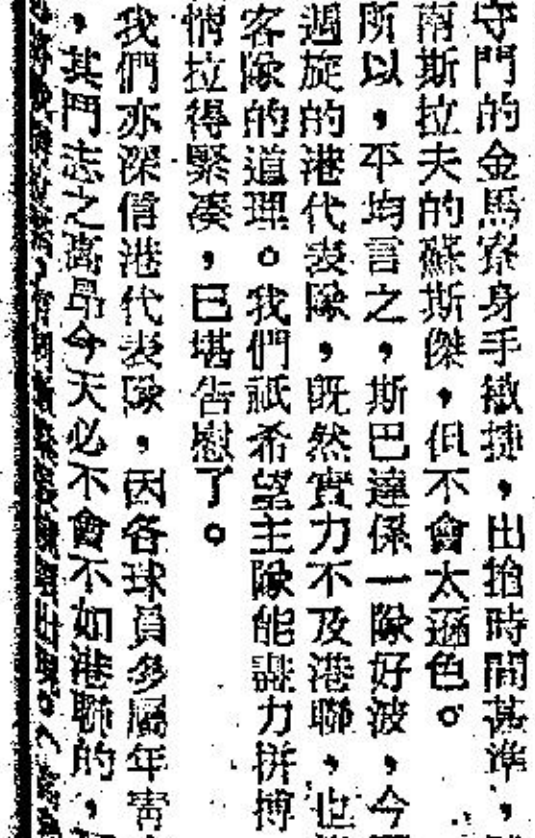 守門的金馬寮身手敏捷，出搶時間甚準，
南斯拉夫的蘇斯傑，但不會太遜色。
所以，平均言之，斯巴達係一隊好波，今
週旋的港代表隊，既然實力不及港聯，也
客隊的道理。我們祇希望主隊能盡力拼搏
情拉得緊湊，已堪告慰了。
我們亦深信港代表隊，因各球員多屬年富
，其鬥志之高昂今天必不會不如港聯的，
出現。